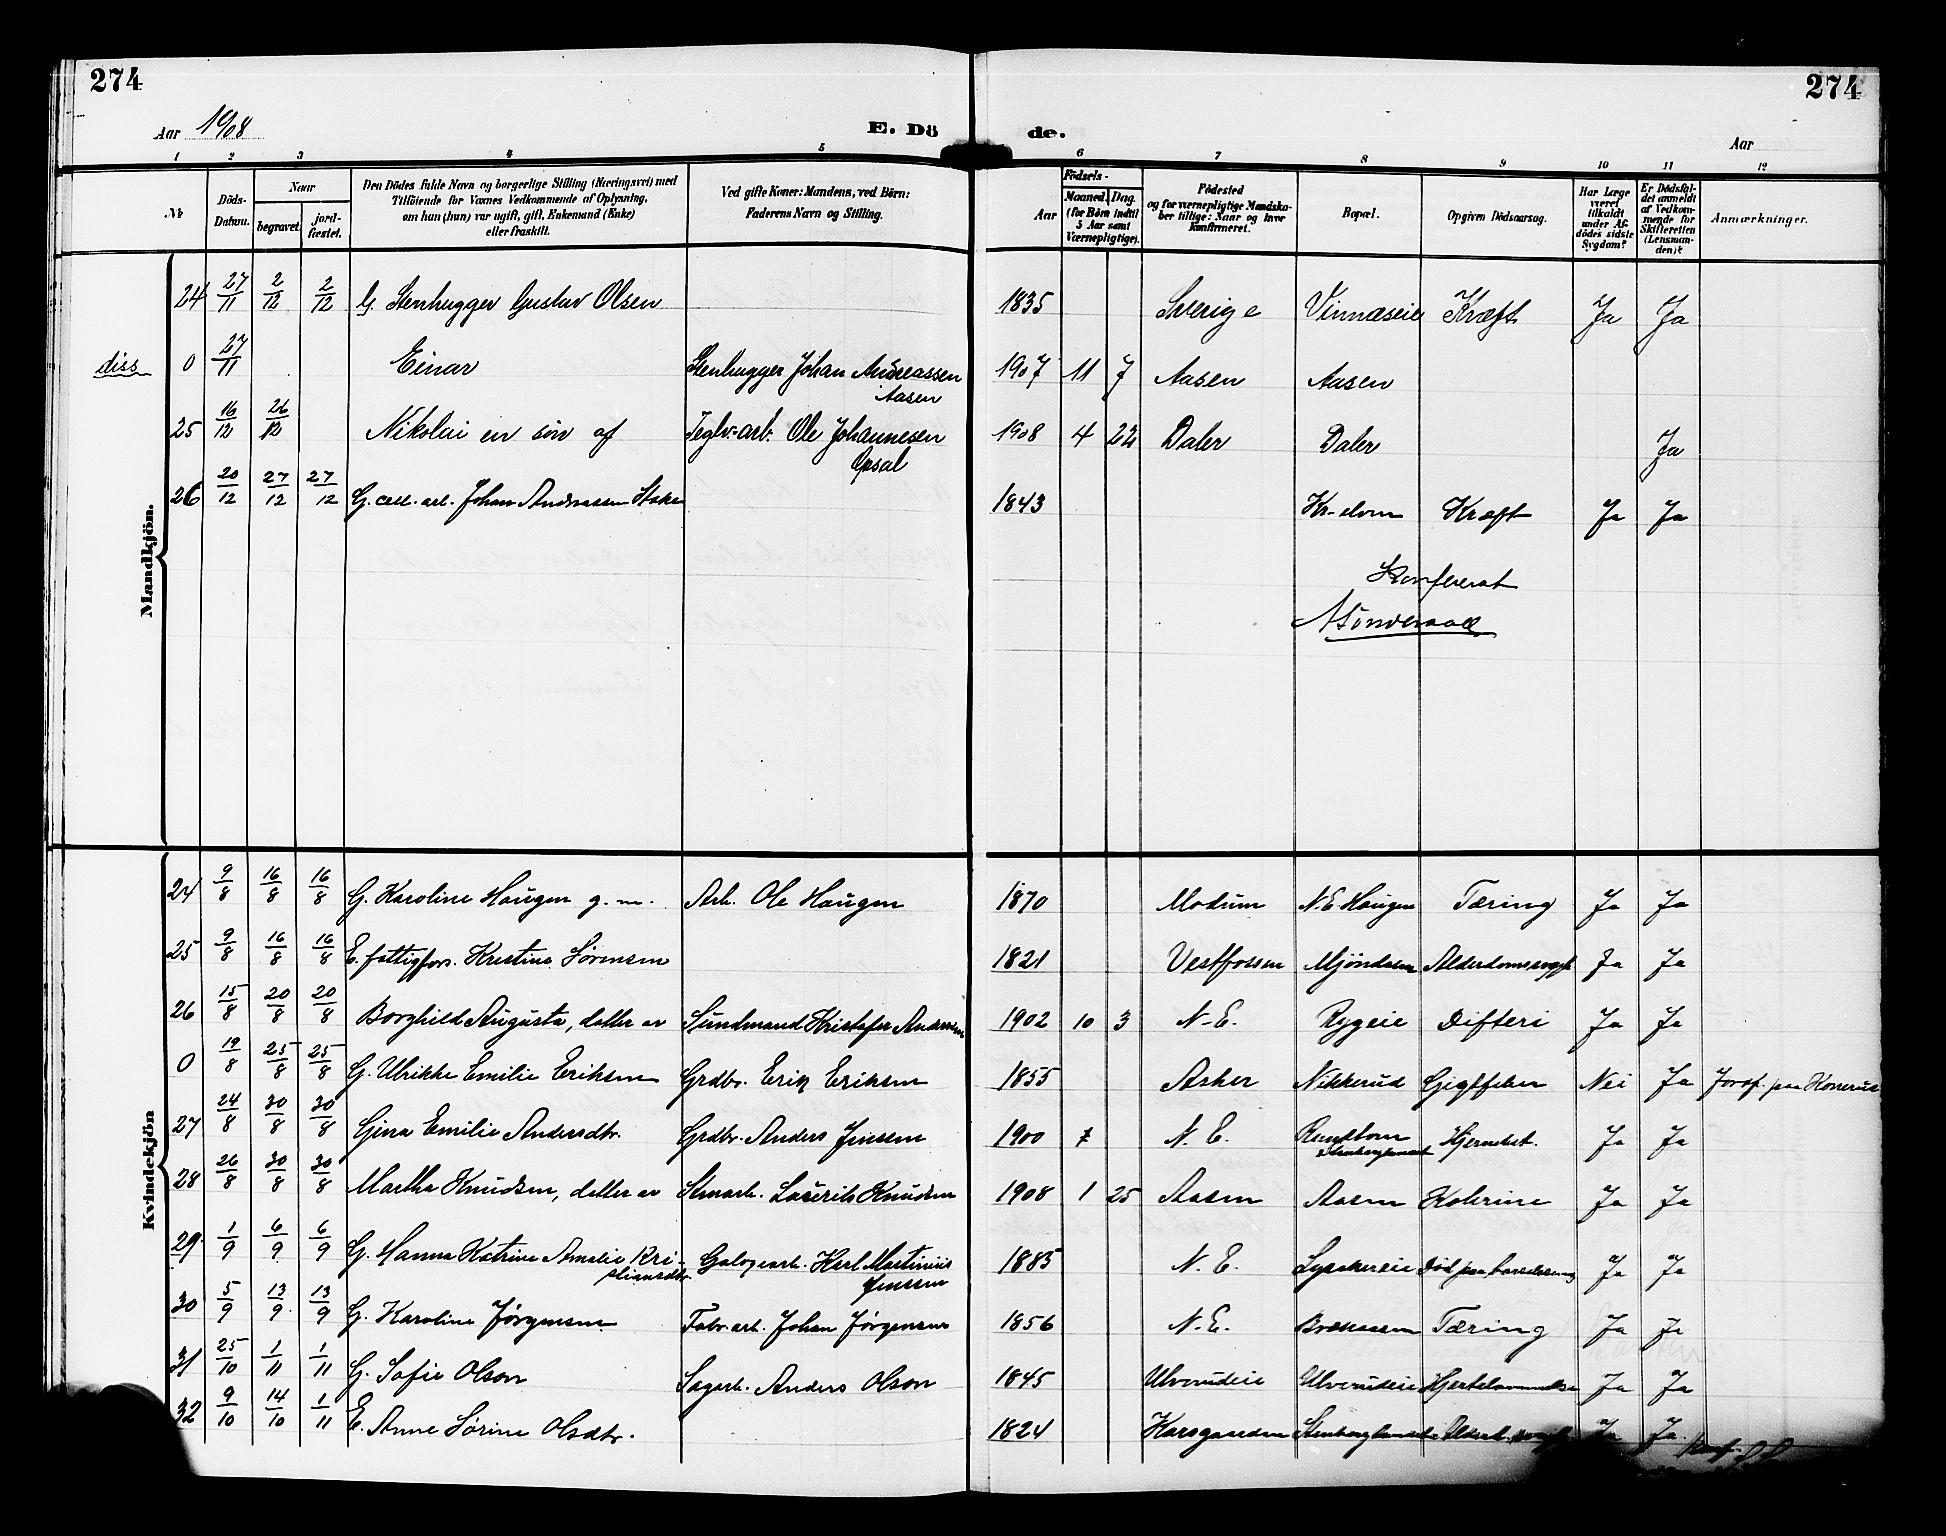 274
274
Aar 1908
E. Dö de.
Aar
1 2 3 4 5 6 7 8 9 10 11 12
No
Döds-Datum.
Naar
begravet.
jordfæstet.
Den Dödes fulde Navn og borgerlige Stilling (Næringsvei) med Tilföiende for Voxnes Vedkommende af Oplysning, om han (hun) var ugift, gift, Enkemand (Enke) eller fraskilt.
Ved gifte Koner: Mandens, ved Börn: Faderens Navn og Stilling.
Födsels-
Aar
Maaned. Dag.
(for Börn indtil 5 Aar samt Værnepligtige).
Födested og for værnepligtige Mandskaber tillige: Naar og hvor konfirmeret.
Bopæl.
Opgiven Dödsaarsag.
Har Læge været tilkaldt under Afdödes sidste Sygdom?
Er Dödsfaldet anmeldt af Vedkommende for Skifteretten (Lensmanden)?
Anmærkninger.
Mandkjön.
24 27/11 2/12 2/12 G. Stenhugger Gustav Olsen 1835 Sverige Vinnæseie Kræft Ja Ja
diss 0 27/11 Einar Stenhugger Johan Andreassen Aasen 1907 11 7 Aasen Aasen
25 16/12 26/12 Nikolai en søn af Teglv.-arb. Ole Johannesen Opsal 1908 4 22 Daler Daler Ja
26 20/12 27/12 27/12 G. cell. arb. Johan Andreassen Stake 1843 Kr-elven Kræft Ja Ja
Konfererat
Kvindekjön
24 9/8 16/8 16/8 G. Karoline Haugen g. m. Arb. Ole Haugen 1870 Modum N.E Haugen Tæring Ja Ja
25 9/8 16/8 16/8 E. fattigfors. Kristine Sørensen 1821 Vestfossen Mjöndalen Ja Ja
26 15/8 20/8 20/8 Borghild Augusta, datter av Sundmand Kristofer Andersen 1902 10 3 N-E. Rygeie Difteri Ja Ja
0 19/8 25/8 25/8 G. Ulrikke Emilie Eriksen Grdbr. Erik Eriksen 1855 Asker Nikkerud Gigtfeber Nei Ja Jordf. paa Konerud
27 24/8 30/8 30/8 Gina Emilie Andersdtr. Grdbr. Anders Jenssen 1900 7 N. E. Hjernebet. Ja Ja
28 26/8 30/8 30/8 Martha Knudsen, datter av Stenarb. Laurits Knudsen 1908 1 25 Aasen Aasen Kolerine Ja Ja
29 1/9 6/9 6/9 G. Hanna Katrine Amalie Kristiansdtr. Galogearb. Karl Martinius Jenssen 1885 N. E. Lysakereie Død paa barselseng Ja Ja
30 5/9 13/9 13/9 G. Karoline Jørgensen Fabr. arb. Johan Jørgensen 1856 N.E. Tæring Ja Ja
31 25/10 1/11 1/11 G. Sofie Olson Sagarb. Anders Olson 1845 Ulverudeie Ulverudeie Hjertelammelse Ja Ja
32 9/10 14/10 1/11 E. Anne Sörine Olsdtr. 1824 Ja Ja